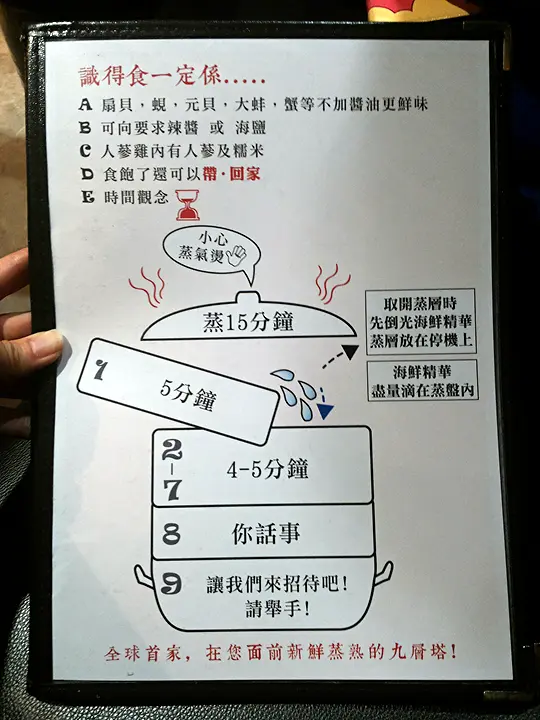 識得食一定係.....
A 扇貝，蜆，元貝，大蚌，蟹等不加醬油更鮮味
B 可向要求辣醬 或 海鹽
C 人蔘雞內有人蔘及糯米
D 食飽了還可以帶·回家
E 時間觀念
小心
蒸氣燙
蒸15分鐘
取開蒸層時
先倒光海鮮精華
蒸層放在停機上
海鮮精華
盡量滴在蒸盤內
1 5分鐘
2-7 4-5分鐘
8 你話事
9 讓我們來招待吧!
請舉手!
全球首家，在您面前新鮮蒸熟的九層塔!